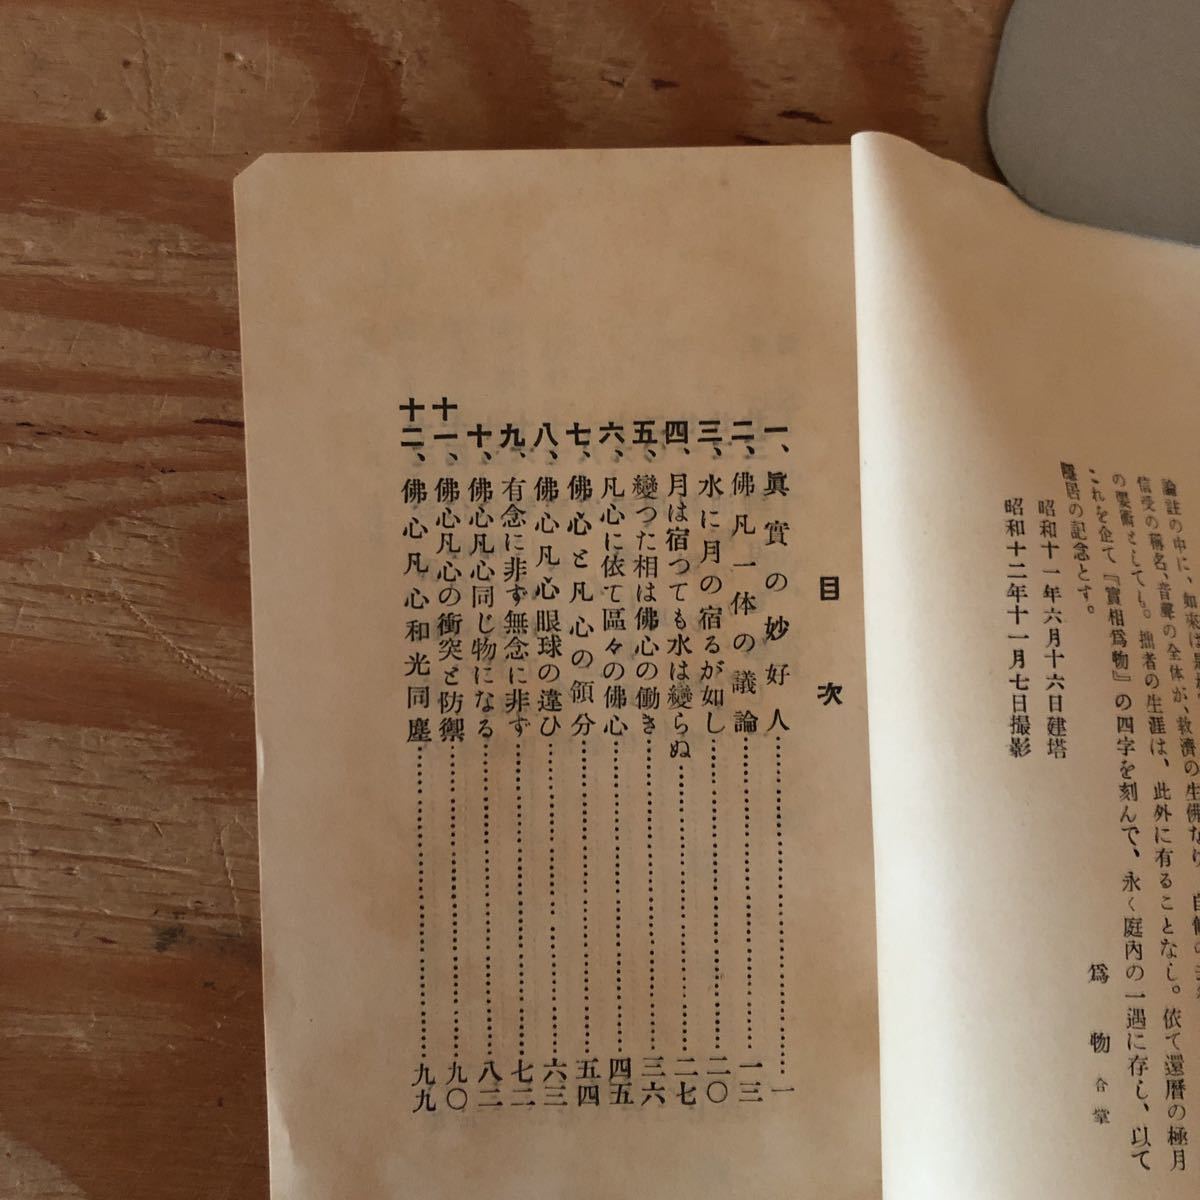 論註の中に、如來は
信受の稱名、音聲の全体が、救濟の生佛なり、自
の要術としても。拙者の生涯は、此外に有ることなし。依て還曆の極月
これを企て『實相爲物』の四字を刻んで、永く庭內の一遇に存し、以て
隱居の記念とす。
爲物合掌
昭和十一年六月十六日建塔
昭和十二年十一月七日撮影
目次
一、眞實の妙好人…………一
二、佛凡一体の議論…………一三
三、水に月の宿るが如し…………二〇
四、月は宿つても水は變らぬ…………二七
五、變つた相は佛心の働き…………三六
六、凡心に依て區々の佛心…………四五
七、佛心と凡心の領分…………五四
八、佛心凡心眼球の違ひ…………六三
九、有念に非ず無念に非ず…………七二
十、佛心凡心同じ物になる…………八二
十一、佛心凡心の衝突と防禦…………九〇
十二、佛心凡心和光同塵…………九九